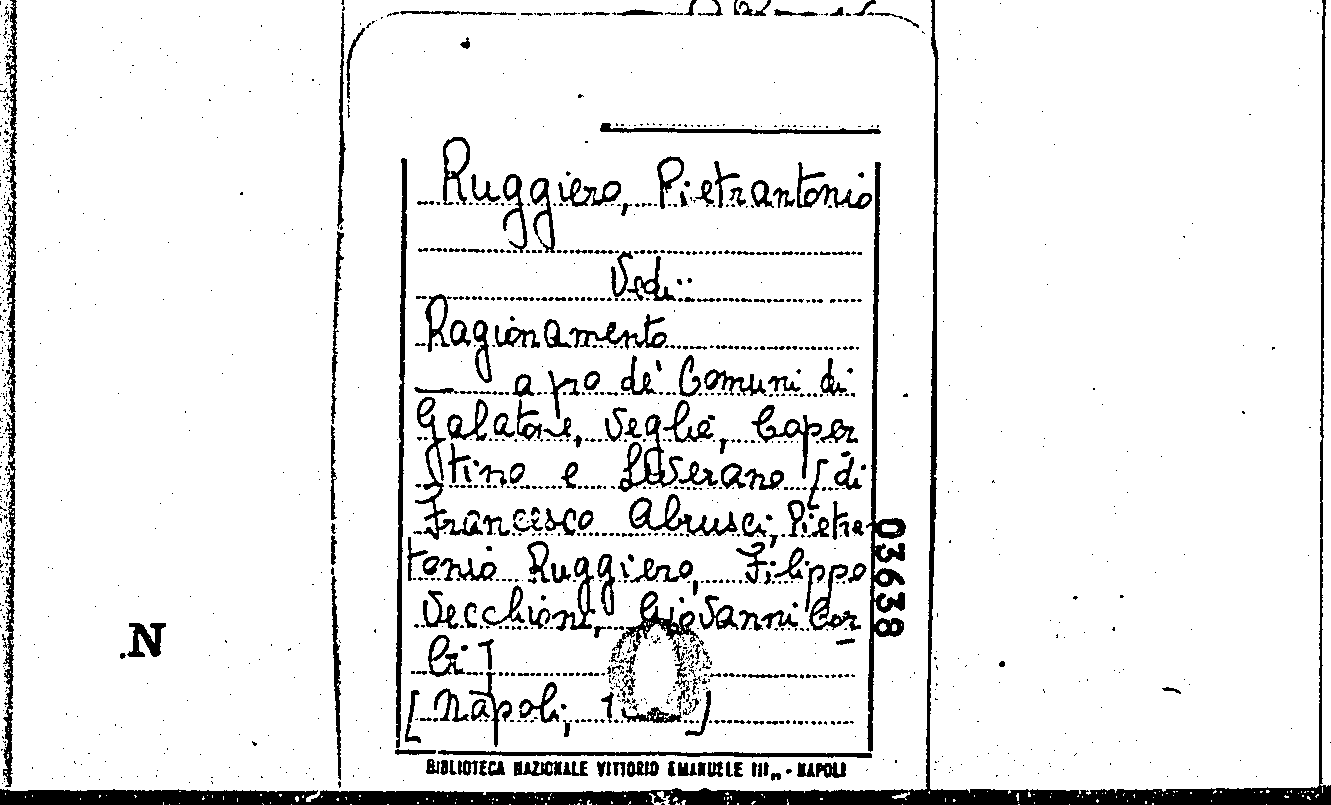 Ruggiero, Pietrantonio
Vedi:
Ragionamento
— a pro de' Comuni di
Galatone, Veglie, Coper
tino e Leverano [di
Francesco Abrusci, Pietra
tonio Ruggiero, Filippo
Vecchioni, Giovanni Cor
bi]
[Napoli, 1 ]
03638
N
BIBLIOTECA NAZIONALE VITTORIO EMANUELE III„ - NAPOLI